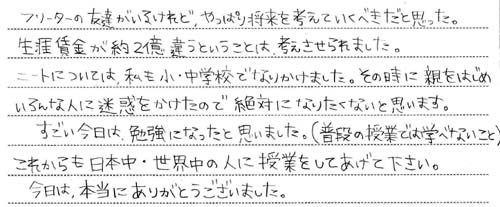 フリーターの友達がいるけれど、やっぱり将来を考えていくべきだと思った。
生涯賃金が約2億違うということは、考えさせられました。
ニートについては、私も小・中学校でなりかけました。その時に親をはじめ
いろんな人に迷惑をかけたので絶対になりたくないと思います。
すごい今日は、勉強になったと思いました。(普段の授業では学べないこと)
これからも日本中・世界中の人に授業をしてあげて下さい。
今日は、本当にありがとうございました。